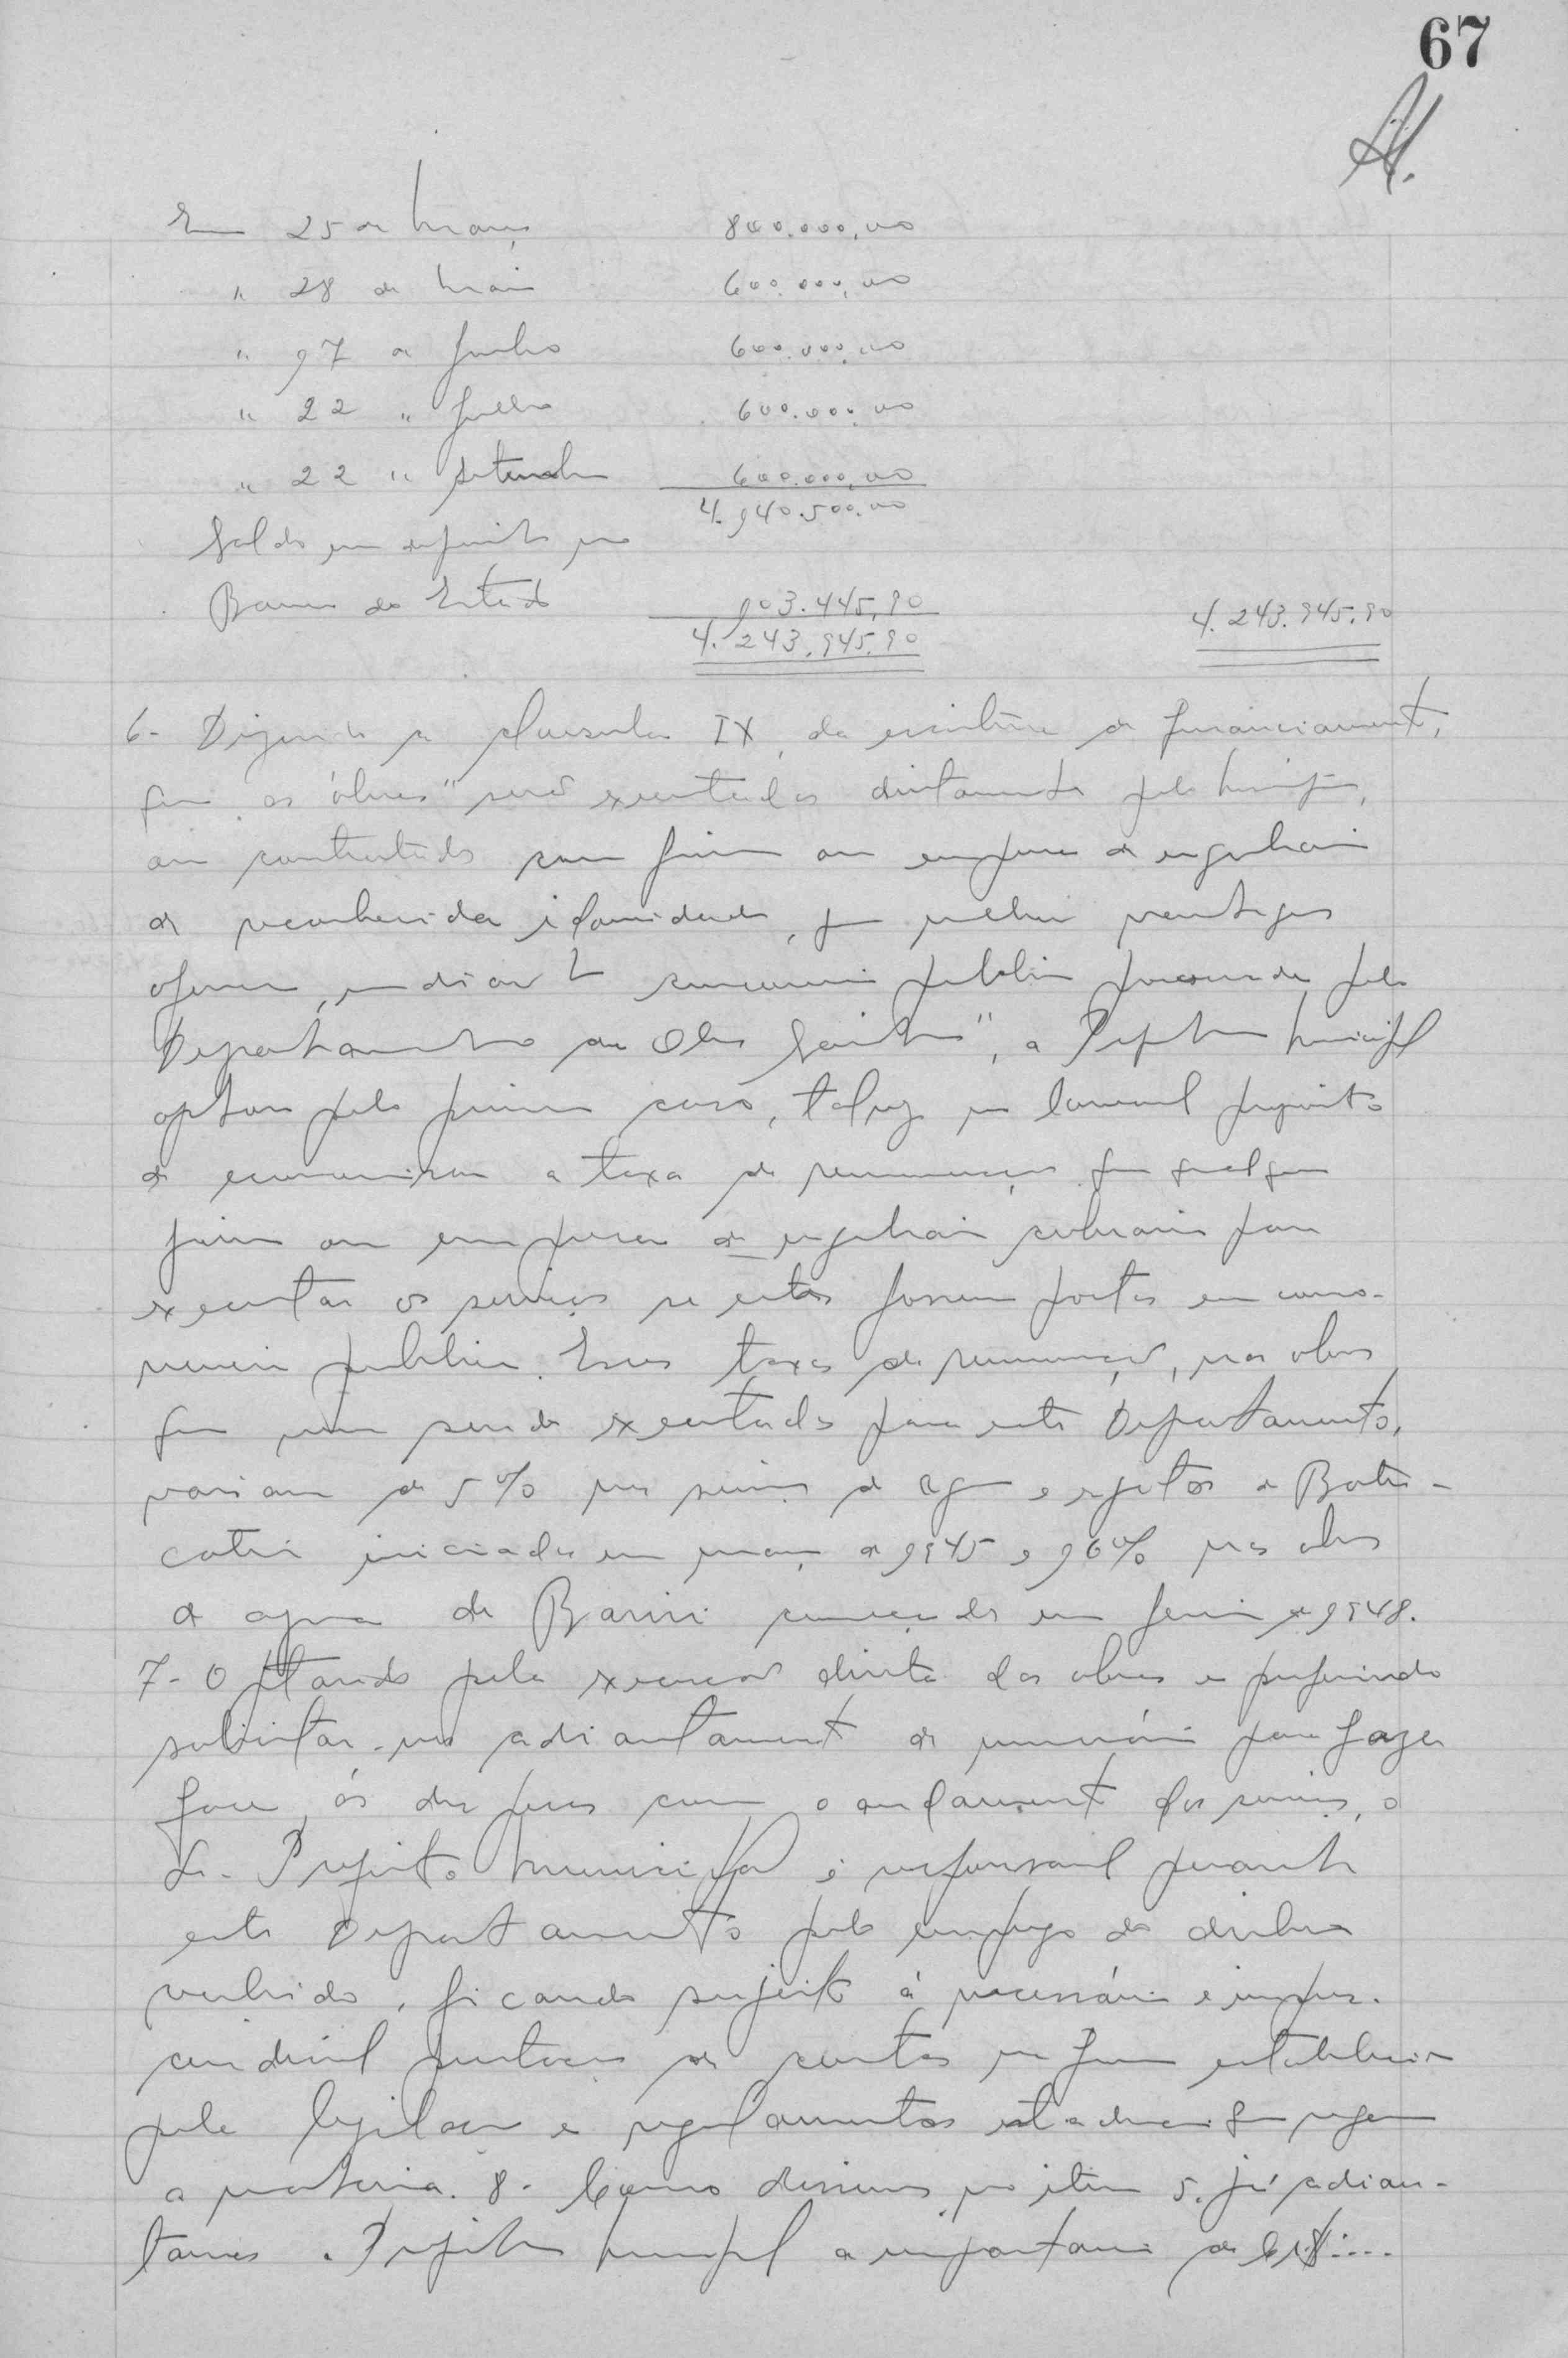 67
Em 25 de Março 800.000,00
" 28 de Maio 600.000,00
" 17 de Junho 600.000,00
" 22 " Julho 600.000,00
" 22 " Setembro 600.000,00
4.140.500,00
Saldo em deposito no
Banco do Estado 103.445,90
4.243.945,90 4.243.945,90
6- Dizendo a clausula IX, da escritura de financiamento,
que as "obras" serão executadas diretamente pelo Municipio,
ou contratadas com firma ou empresa de engenharia
de reconhecida idoneidade, que melhor vantagens
oferecer, mediante concorrencia publica processada pelo
Departamento de Obras Sanitarias", a Prefeitura Municipal
optou pelo primeiro caso, talvez no louvavel proposito
de economisar a taxa de remuneração que qualquer
firma ou empresa de engenharia cobraria para
executar os serviços se estes fossem postos em concor-
rencia publica. Essas taxas de remuneração, nas obras
que vem sendo executadas para este Departamento,
variam de 5% nos serviços de agua e esgotos de Botu-
catu iniciados em março de 1945 e 16% nas obras
de agua de Bariri começadas em janeiro de 1948.
7- Optando pela execução direta das obras e preferindo
solicitar-nos adiantamento de numerário para fazer
face ás despesas com o andamento dos serviços, o
Sr. Prefeito Municipal é responsavel perante
este Departamento pelo emprego do dinheiro
recebido, ficando sujeito á necessária e impres-
cindivel prestação de contas na forma estabelecida
pela legislação e regulamentos estaduais que regem
a materia. 8- Como dissemos no item 5, já adian-
tamos a Prefeitura Municipal a importancia de Cr$....